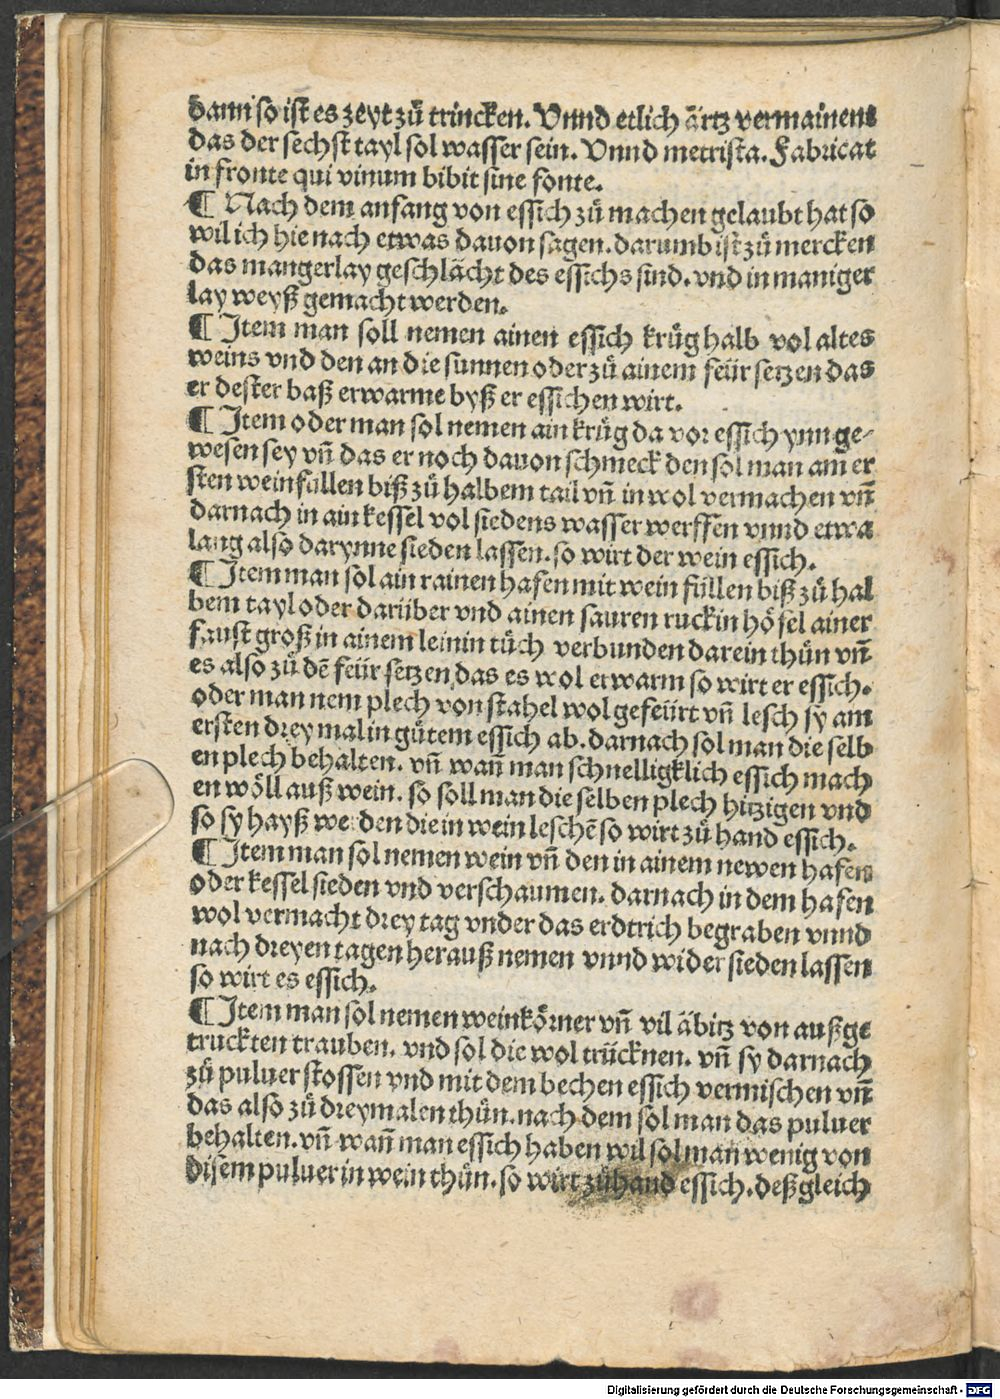 dann so ist es zeyt zů trincken. Vnnd etlich ärtz vermainent
das der sechst tayl sol wasser sein. Vnnd metrista. Fabricat
in fronte qui vinum bibit sine fonte.
¶ Nach dem anfang von essich zů machen gelaubt hat so
wil ich hie nach etwas dauon sagen. darumb ist zů mercken
das mangerlay geschlächt des essichs sind. vnd in maniger
lay weyß gemacht werden.
¶ Jtem man soll nemen ainen essich krůg halb vol altes
weins vnd den an die sunnen oder zů ainem feür setzen das
er dester baß erwarme byß er essichen wirt.
¶ Jtem oder man sol nemen ain krůg da vor essich ynn ge⸗
wesen sey vñ das er noch dauon schmeck den sol man am er
sten wein füllen biß zů halbem tail vñ in wol vermachen vñ
darnach in ain kessel vol siedens wasser werffen vnnd etwa
lang also darynne sieden lassen. so wirt der wein essich.
¶ Jtem man sol ain rainen hafen mit wein füllen biß zů hal
bem tayl oder darüber vnd ainen sauren ruckin hösel ainer
faust groß in ainem leinin tůch verbunden darein thůn vñ
es also zů dē feür setzen das es wol erwarm so wirt er essich.
oder man nem plech von stahel wol gefeürt vñ lesch sy am
ersten drey mal in gůtem essich ab. darnach sol man die selb
en plech behalten. vñ wañ man schnelligklich essich mach
en wöll auß wein. so soll man die selben plech hitzigen vnd
so sy hayß werden die in wein leschē so wirt zů hand essich.
¶ Jtem man sol nemen wein vñ den in ainem newen hafen
oder kessel sieden vnd verschaumen. darnach in dem hafen
wol vermacht drey tag vnder das erdtrich begraben vnnd
nach dreyen tagen herauß nemen vnnd wider sieden lassen
so wirt es essich.
¶ Jtem man sol nemen weinkörner vñ vil äbitz von außge
truckten trauben. vnd sol die wol trücknen. vñ sy darnach
zů puluer stossen vnd mit dem bechen essich vermischen vñ
das also zů dreymalen thůn. nach dem sol man das puluer
behalten. vñ wañ man essich haben wil sol man wenig von
disem puluer in wein thůn. so wirt zůhand essich. deßgleich
Digitalisierung gefördert durch die Deutsche Forschungsgemeinschaft - DFG